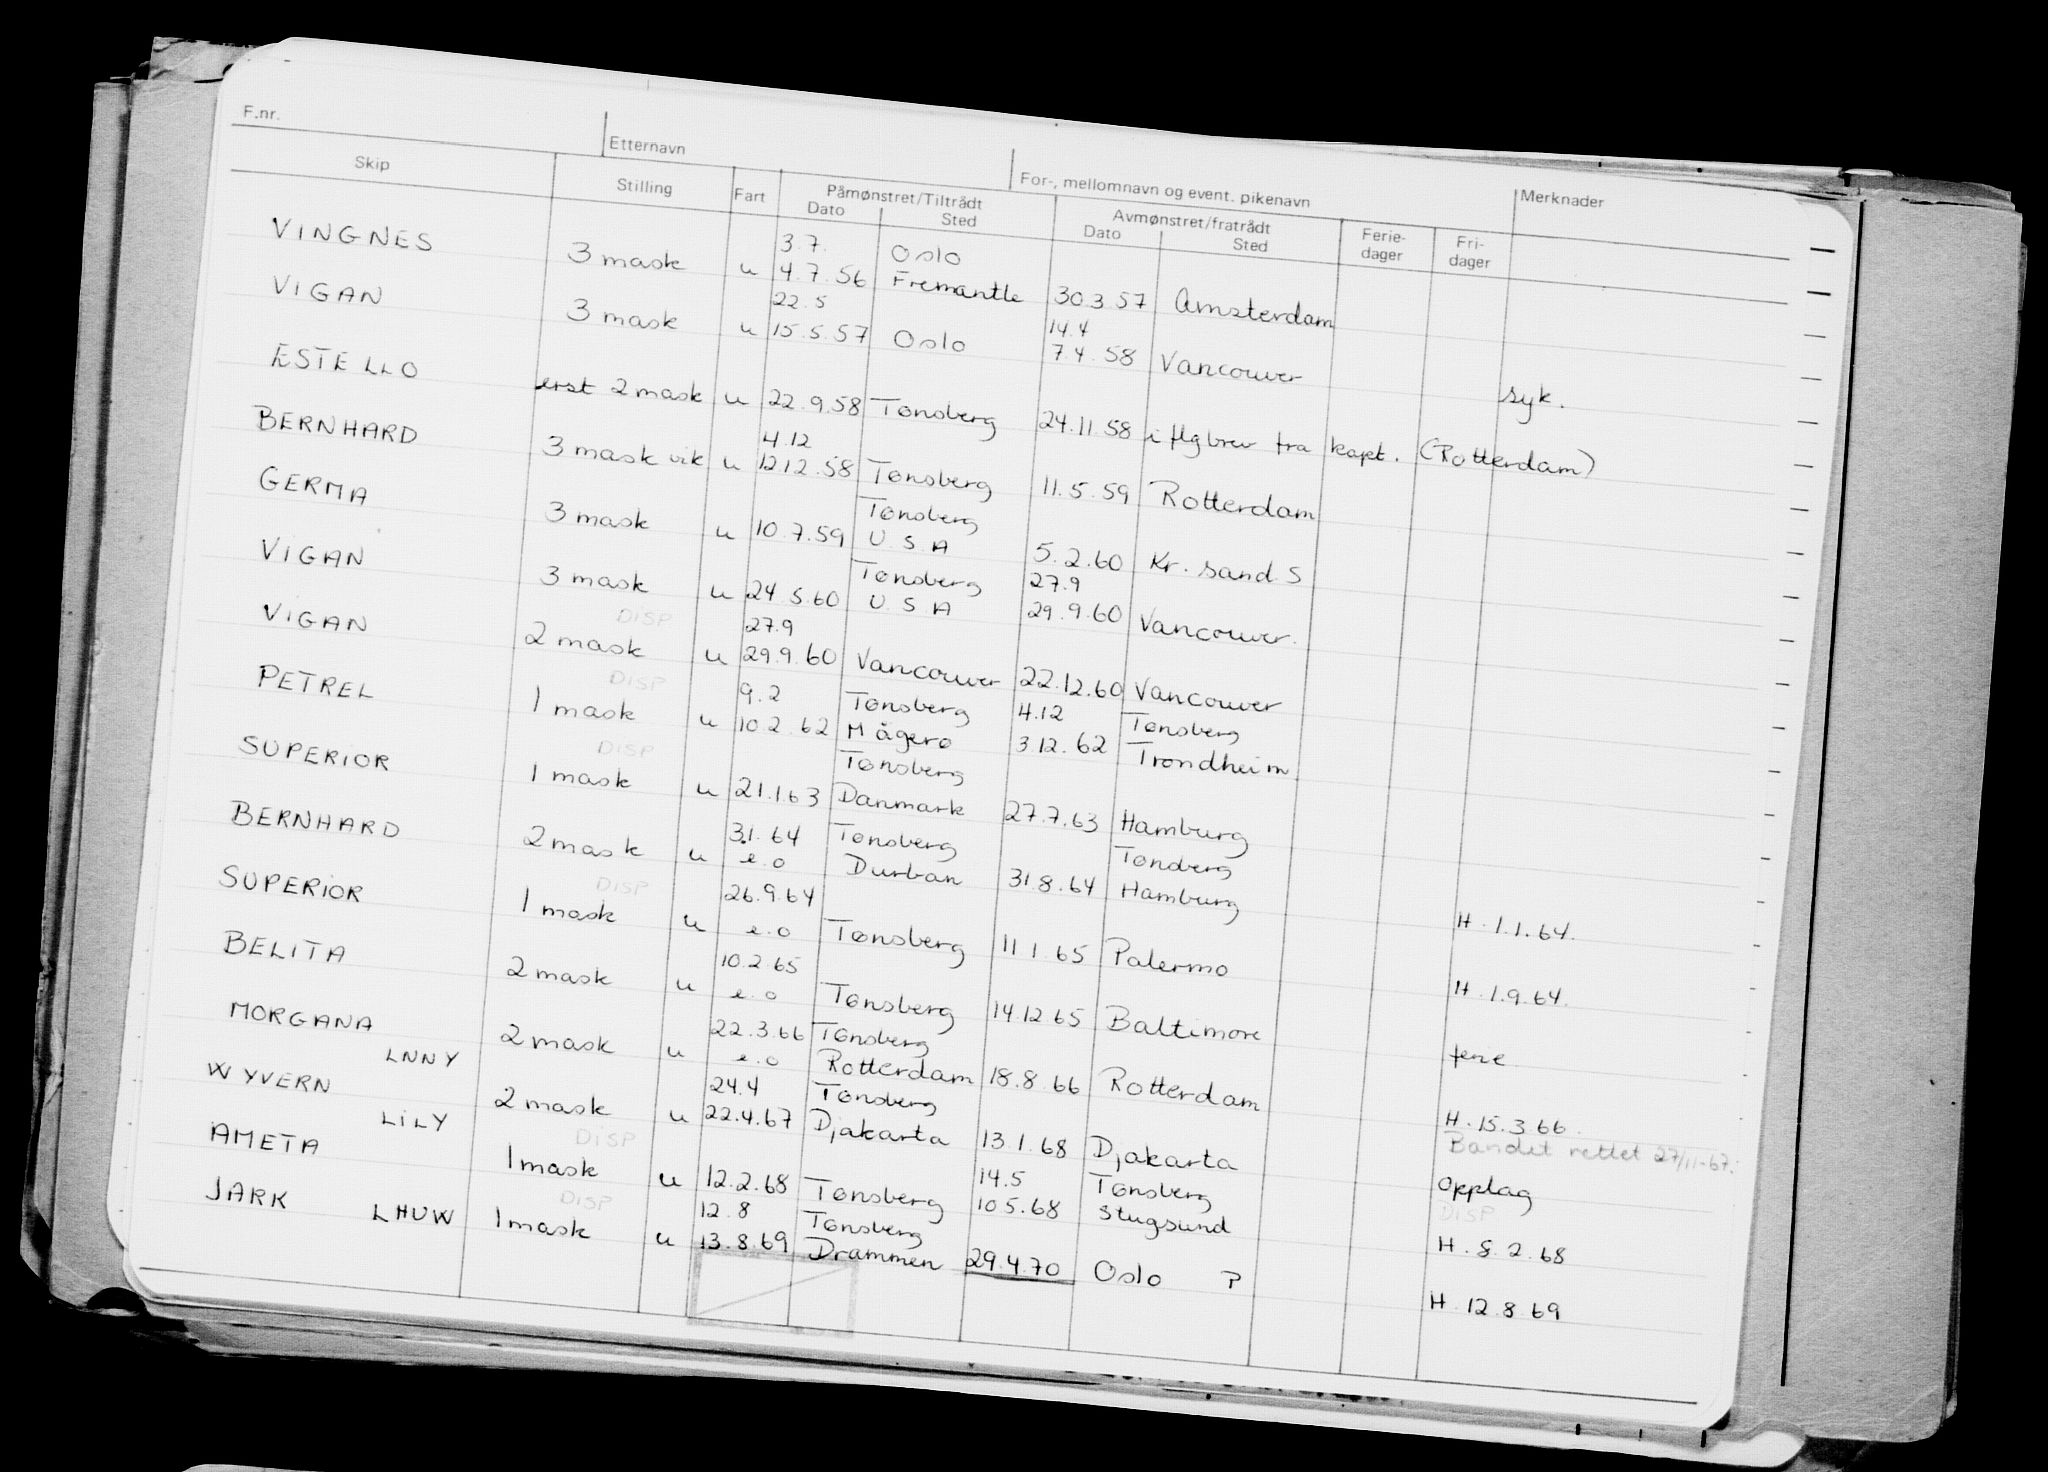 F.nr. Etternavn For-, mellomnavn og event. pikenavn Merknader
Skip Stilling Fart Påmønstret/Tiltrådt Dato Sted Avmønstret/fratrådt Dato Sted Ferie-dager Fri-dager
3.7. Oslo
VINGNES 3 mask u 4.7.56 Fremantle 30.3.57 Amsterdam
22.5 14.4
VIGAN 3 mask u 15.5.57 Oslo 7.4.58 Vancouver syk.
ESTELLO erst 2 mask u 22.9.58 Tønsberg 24.11.58 i flg brev fra kapt. (Rotterdam)
4.12
BERNHARD 3 mask vik u 12.12.58 Tønsberg 11.5.59 Rotterdam
Tønsberg
GERMA 3 mask u 10.7.59 U.S.A 5.2.60 Kr.sand S
Tønsberg 27.9
VIGAN 3 mask u 24.5.60 U.S.A 29.9.60 Vancouver.
DISP 27.9
VIGAN 2 mask u 29.9.60 Vancouver 22.12.60 Vancouver
DISP 9.2 Tønsberg 4.12 Tønsberg
PETREL 1 mask u 10.2.62 Mågerø 3.12.62 Trondheim
DISP Tønsberg
SUPERIOR 1 mask u 21.1.63 Danmark 27.7.63 Hamburg
3.1.64 Tønsberg Tønsberg
BERNHARD 2 mask u e.o Durban 31.8.64 Hamburg H. 1.1.64.
DISP 26.9.64
SUPERIOR 1 mask u e.o Tønsberg 11.1.65 Palermo H. 1.9.64.
10.2.65
BELITA 2 mask u e.o Tønsberg 14.12.65 Baltimore ferie
22.3.66 Tønsberg
MORGANA LNNY 2 mask u e.o Rotterdam 18.8.66 Rotterdam H. 15.3.66.
24.4 Tønsberg Bandet rettet 27/11-67.
WYVERN LILY 2 mask u 22.4.67 Djakarta 13.1.68 Djakarta Opplag
DISP 14.5 Tønsberg DISP
AMETA 1 mask u 12.2.68 Tønsberg 10.5.68 Stugsund H. 8.2.68
DISP 12.8 Tønsberg
JARK LHUW 1 mask u 13.8.69 Drammen 29.4.70 Oslo P H. 12.8.69